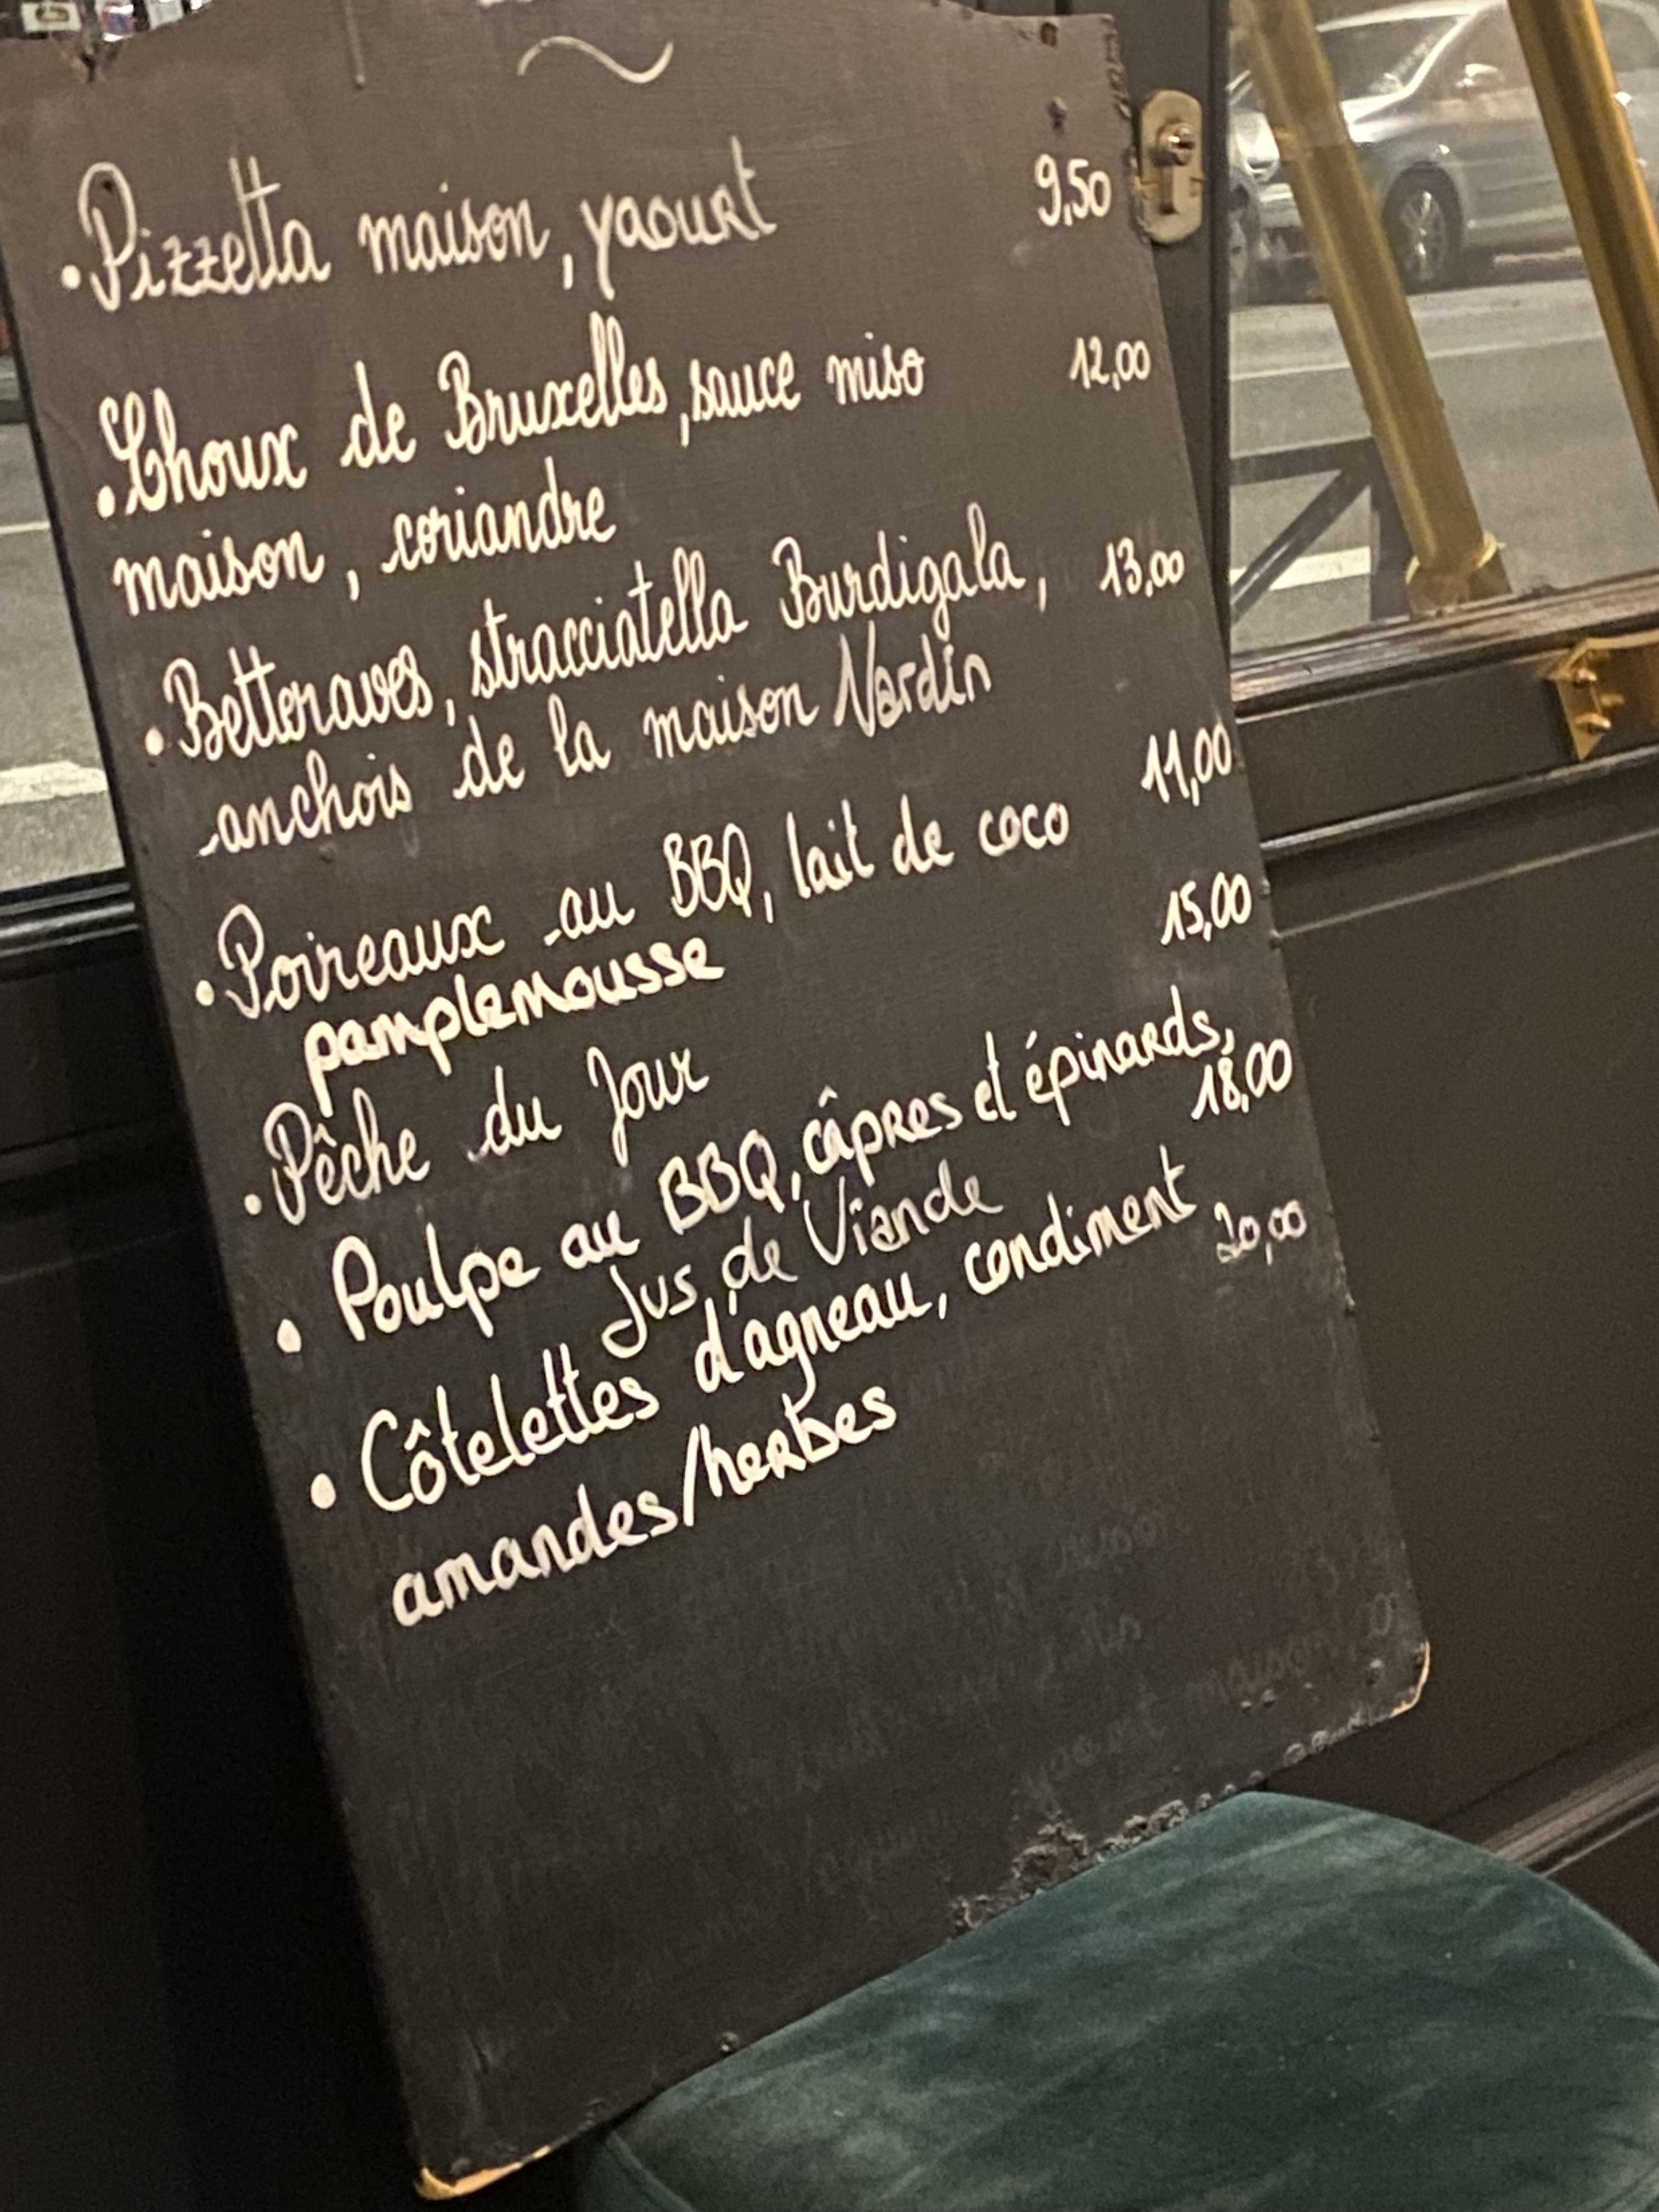 • Pizzetta maison, yaourt 9,50
• Choux de Bruxelles, sauce miso 12,00
maison, coriandre
• Betteraves, stracciatella Burdigala, 13,00
anchois de la maison Nardin
• Poireaux au BBQ, lait de coco 11,00
pamplemousse
• Pêche du Jour 15,00
• Poulpe au BBQ, câpres et épinards, 18,00
Jus de Viande
• Côtelettes d'agneau, condiment 20,00
amandes/herbes